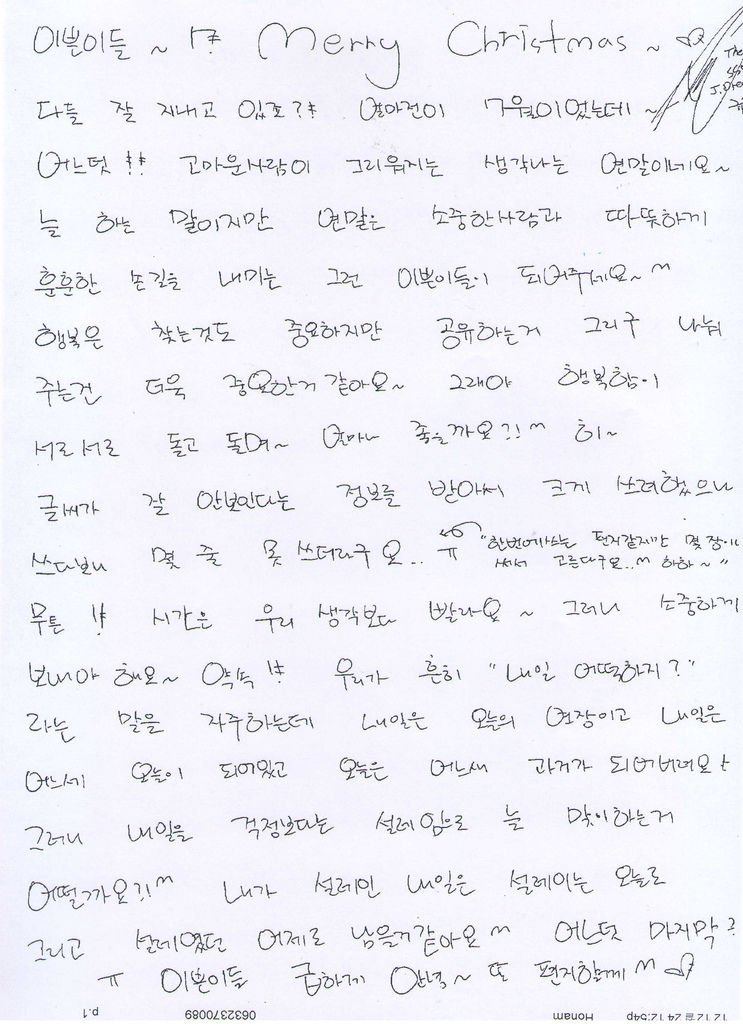 이쁜이들 ~ !? Merry Christmas ~
다들 잘 지내고 있죠?! 얼마전이 7월이었는데 ~
어느덧 !! 고마운사람이 그리워지는 생각나는 연말이네요~
늘 하는 말이지만 연말은 소중한사람과 따뜻하게
훈훈한 손길을 내미는 그런 이쁜이들이 되어주세요~^^
행복은 찾는것도 중요하지만 공유하는거 그리구 나눠
주는건 더욱 중요한거 같아요~ 그래야 행복함이
서로서로 돌고 돌며~ 얼마나 좋을까요?!^^ 히~
글씨가 잘 안보인다는 정보를 받아서 크게 쓰려했으나
쓰다보니 몇 줄 못 쓰더라구요.. ㅠ "한번에쓰는 편지같지만 몇 장이나
써서 고른다구요..^^ 하하~"
무튼 !! 시간은 우리 생각보다 빨라요 ~ 그러니 소중하게
보내야 해요~ 약속 !! 우리가 흔히 "내일 어떡하지?"
라는 말을 자주하는데 내일은 오늘의 연장이고 내일은
어느새 오늘이 되어있고 오늘은 어느새 과거가 되어버려요!
그러니 내일을 걱정보다는 설레임으로 늘 맞이하는거
어떨까요?!^^ 내가 설레인 내일은 설레이는 오늘로
그리고 설레였던 어제로 남을거같아요^^ 어느덧 마지막
ㅠ 이쁜이들 급하게 안녕~ 또 편지할게^^
p.1 0632370089 Honam 12 12월 24 12:54p